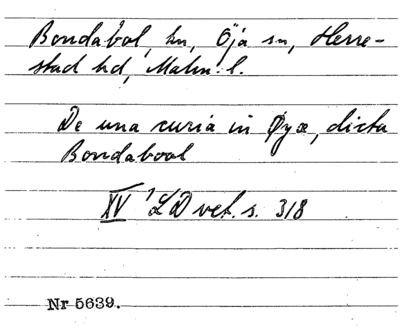 Bondabol, hn, Öja sn, Herre-
stad hd, Malm. l.
De una curia in Øyæ, dicta
Bondabool
XV 1 LD vet. s. 318
Nr 5639.